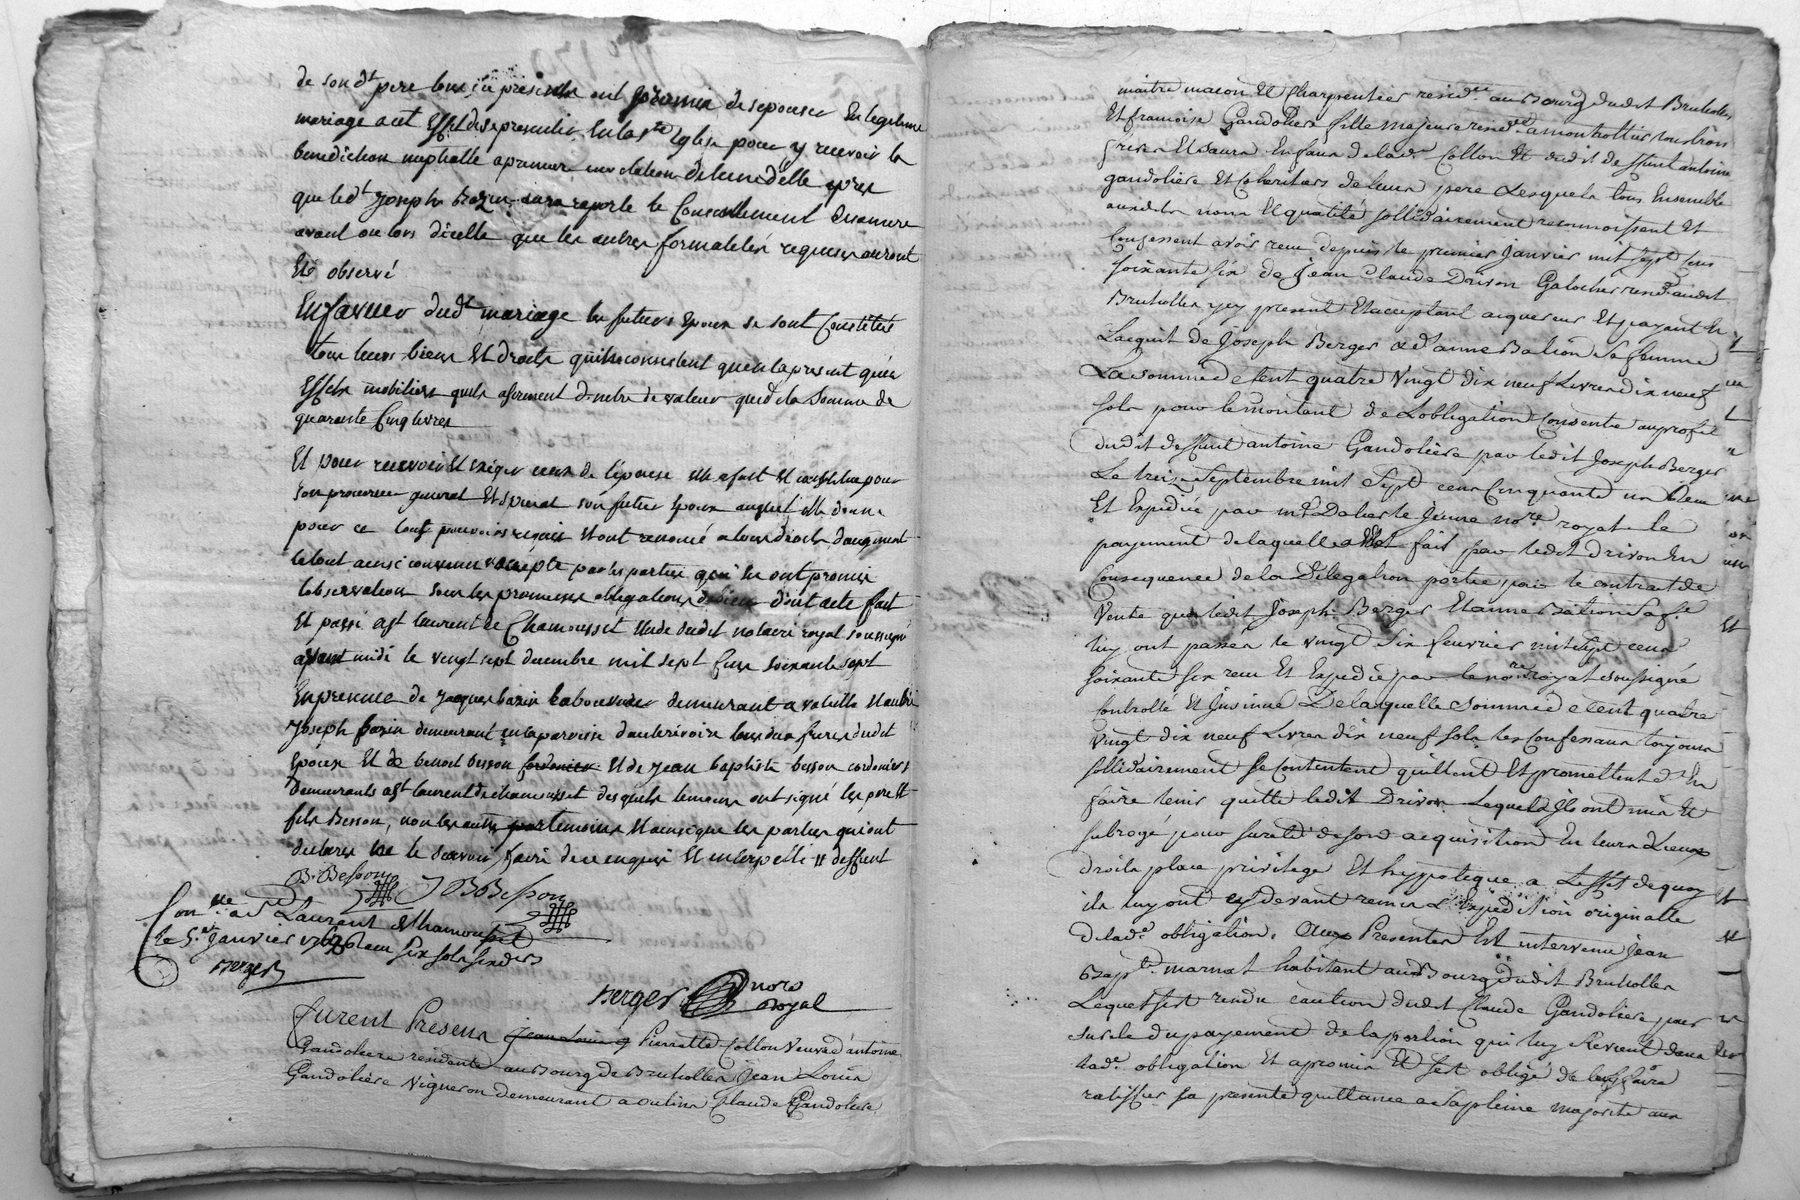 de son dt pere tous icy presents ont promis desepouser En legitime
mariage a cet Effet dese presenter En la ste Eglise pour y recevoir la
benediction nuptialle a premiere delun delle apres
que led. Joseph aura raporté le Consentement desamere
avant ou lors dicelle que les autres formalités requises auront
Eté observé
En faveur dudt mariage les futurs Epoux se sont Constitués
tous leurs biens Et droits quils connistent quen la present quen
Effets mobiliers quils aferment dnetre de valeur que de la Somme de
quarante Cinq livres
Et pour recevoir Et exiger ceux de lepouse elle a fait Et constitue pour
son procureur general Et special son futur Epoux auquel elle donne
pour ce tout pouvoirs requis Et ont renoncé a tous droits daugment
le tout ainsi convenu accepte par les parties qui en ont promis
lobservation sous les promesses obligations dont acte fait
Et passé a st laurent de Chamousset Etude dudit notaire royal soussigné
avant midi le vingt sept decembre mil sept Cens soixante sept
En presence de Jacques bazin laboureur demeurant a valsille Et autre
Joseph bazin demeurant en la paroisse dauberivoire tous deux freres dudit
Epoux Et de benoit besson cordonier Et de Jean baptiste besson cordoniers
demeurants a st laurent de chamousset desquels temoins ont signé les pere Et
fils Besson, non les autres par temoins Et ainsi que les parties qui ont
declarés ne le scavoir faire de ce enquis Et interpellé Et
B. Besson J B Besson
Con. lle a St Laurent de Chamousset
le 5. er Janvier 1768 Reçu six sols six ders
Berger
Berger nore Royal
furent Presens Jean Louis G Pierrette Collon veuve d'antoine
Gandoliere residente au Bourg de Brullolles Jean Louis
Gandoliére vigneron demeurant a oulins Claude Gandoliere
maitre macon Et Charpentier resid.te au Bourg dudit Brullolles
Et francoise Gandoliere fille majeure resid.te a montrottier tous trois
freres Et saurs Enfans de lad.e Collon Et dudit deffunt antoine
gandoliere Et Coheritiers de leur pere Lesquels tous Ensemble
auxdits noms Et qualité sollidairement reconnoissent Et
Confessent avoir reçu depuis le premier Janvier mil sept Cens
soixante six de Jean Claude Drivon Galocher resid.t audit
Brullolles icy present Et acceptant acquereur Et payant En
Lacquit de Joseph Berger & d'anne Bation Sa femme
La somme de Cent quatre Vingt dix neuf Livres dix neuf
sols pour le montant de Lobligation Consentie au profit
dudit deffunt antoine Gandoliére par ledit Joseph Berger
Le treize septembre mil Sept cens Cinquante un Reçu
Et Expediée par me Dalier le Jeune nore royal le
payement de laquelle Est fait par ledit drivon En
Consequence de la Delegation portée par le contrat de
Vente que ledit Joseph Berger Et anne Bation Sa fe
luy ont passée le vingt six feuvrier mil sept cens
soixante six reçu Et Expedié par le nore royal soussigné
Controllé Et Insinué De laquelle Somme de Cent quatre
vingt dix neuf Livres dix neuf sols les Confessans toujours
sollidairement se Contentent quittent Et promettent d'En
faire tenir quitte ledit Drivon Lequel ils ont mis Et
subrogé pour sureté de son acquisition En leurs Lieux
droits place privilege Et hyppoteque a L'effet dequoy
ils luy ont cy devant remis L'Expedition originalle
de lad.e obligation. aux Presentes Est intervenu Jean
Bapt.e marnat habitant au Bourg dudit Brullolles
Lequel sest rendu caution dudit Claude Gandoliere pour
sureté du payement de la portion qui luy Revient dans
lad.e obligation Et apromis Et sest obligé de luy faire
ratiffier sa presente quittance a sa pleine majorité aux